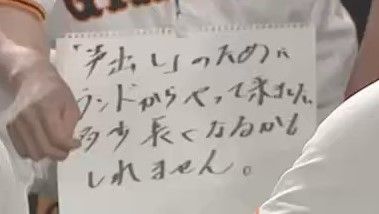 「声出し」のために
ランドからやって来ました
多少長くなるかも
しれません。